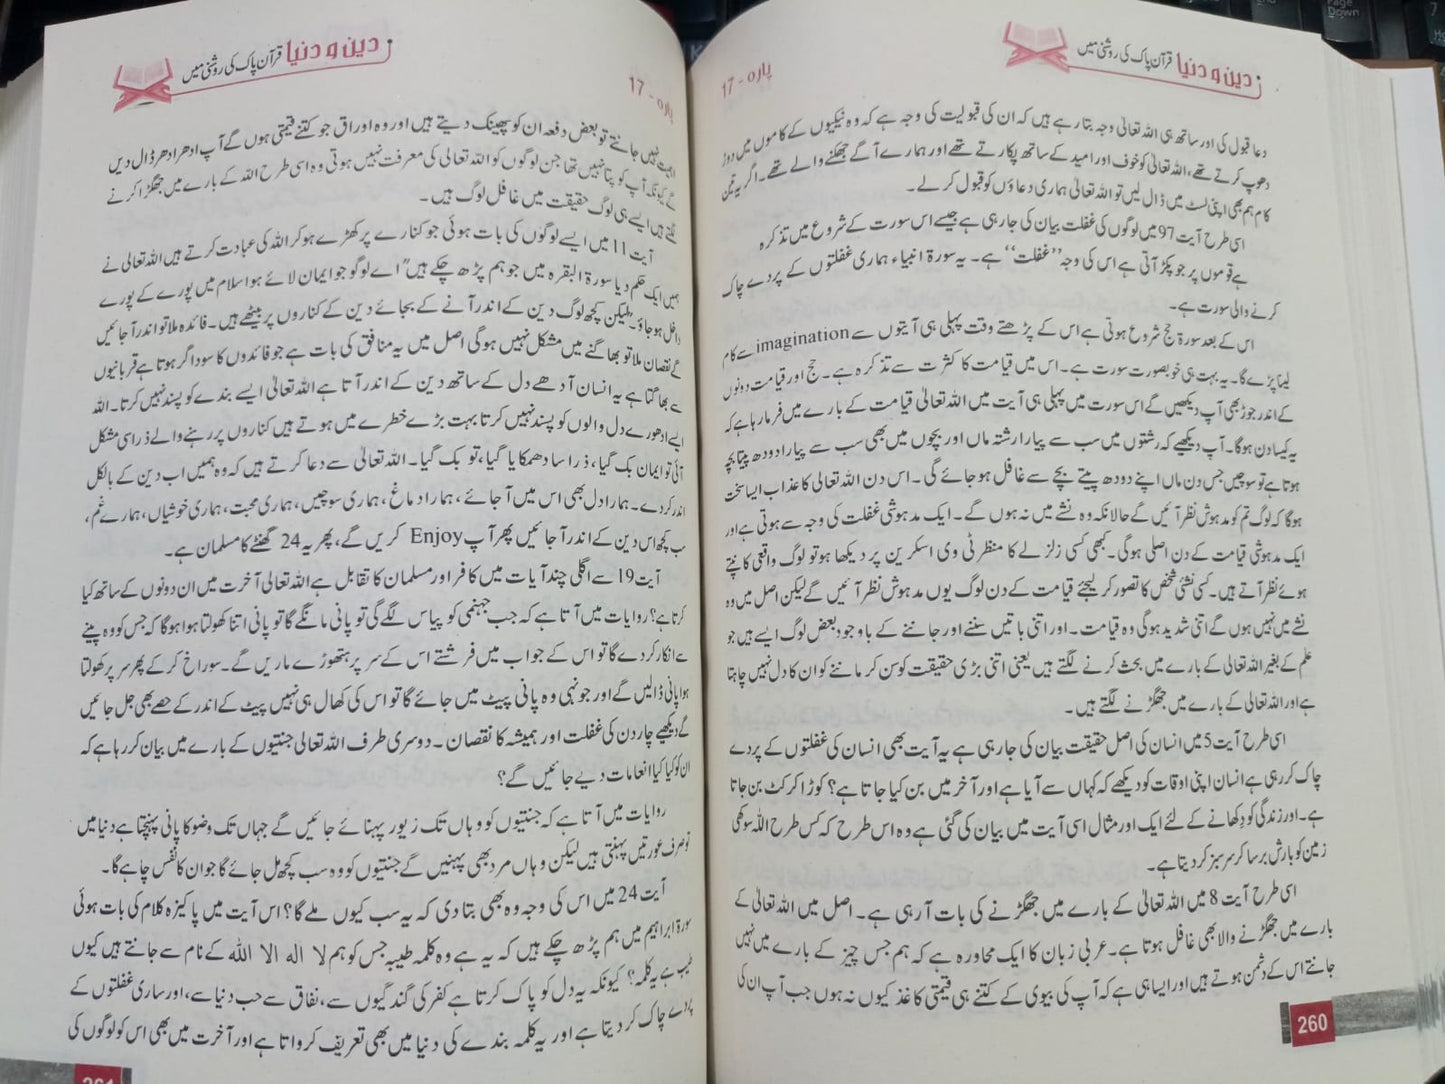 دین و دنیا قرآن پاک کی روشنی میں
پارہ - 17
دعا قبول کی اور ساتھ ہی اللہ تعالیٰ وجہ بتا رہے ہیں کہ ان کی قبولیت کی وجہ ہے کہ وہ نیکیوں کے کاموں میں دوڑ
دھوپ کرتے تھے، اللہ تعالیٰ کو خوف اور امید کے ساتھ پکارتے تھے اور ہمارے آگے جھکنے والے تھے۔ اگر یہ تین
کام ہم بھی اپنی لسٹ میں ڈال لیں تو اللہ تعالیٰ ہماری دعاؤں کو قبول کر لے۔
اسی طرح آیت 97 میں لوگوں کی غفلت بیان کی جا رہی ہے جیسے اس سورت کے شروع میں تذکرہ
ہے قوموں پر جو پکڑ آتی ہے اس کی وجہ ’’غفلت‘‘ ہے۔ یہ سورۃ انبیاء ہماری غفلتوں کے پردے چاک
کرنے والی سورت ہے۔
اس کے بعد سورۃ حج شروع ہوتی ہے اس کے پڑھتے وقت پہلی ہی آیتوں سے imagination سے کام
لینا پڑے گا۔ یہ بہت ہی خوبصورت سورت ہے۔ اس میں قیامت کا کثرت سے تذکرہ ہے۔ حج اور قیامت دونوں
کے اندر جوڑ بھی آپ دیکھیں گے اس سورت میں پہلی ہی آیت میں اللہ تعالیٰ قیامت کے بارے میں فرما رہا ہے کہ
یہ کیسا دن ہوگا۔ آپ دیکھیے کہ رشتوں میں سب سے پیارا رشتہ ماں اور بچوں میں بھی سب سے پیارا دودھ پیتا بچہ
ہوتا ہے تو سوچیں جس دن ماں اپنے دودھ پیتے بچے سے غافل ہو جائے گی۔ اس دن اللہ تعالیٰ کا عذاب ایسا سخت
ہوگا کہ لوگ تم کو مدہوش نظر آئیں گے حالانکہ وہ نشے میں نہ ہوں گے۔ ایک مدہوشی غفلت کی وجہ سے ہوتی ہے اور
ایک مدہوشی قیامت کے دن اصلی ہوگی۔ کبھی کسی زلزلے کا منظر ٹی وی اسکرین پر دیکھا ہو تو لوگ واقعی کانپتے
ہوئے نظر آتے ہیں۔ کسی نشئی شخص کا تصور کر لیجئے قیامت کے دن لوگ یوں مدہوش نظر آئیں گے لیکن اصل میں وہ
نشے میں نہیں ہوں گے اتنی شدید ہوگی وہ قیامت۔ اور اتنی باتیں سننے اور جاننے کے باوجود بعض لوگ ایسے ہیں جو
علم کے بغیر اللہ تعالیٰ کے بارے میں بحث کرنے لگتے ہیں یعنی اتنی بڑی حقیقت کو سن کر ماننے کو ان کا دل نہیں چاہتا
ہے اور اللہ تعالیٰ کے بارے میں جھگڑنے لگتے ہیں۔
اسی طرح آیت 5 میں انسان کی اصل حقیقت بیان کی جا رہی ہے یہ آیت بھی انسان کی غفلتوں کے پردے
چاک کر رہی ہے انسان اپنی اوقات کو دیکھے کہ کہاں سے آیا ہے اور آخر میں بن کیا جاتا ہے؟ کوڑا کرکٹ بن جاتا
ہے۔ اور زندگی کو دِکھانے کے لئے ایک اور مثال اسی آیت میں بیان کی گئی ہے وہ اس طرح کہ کس طرح اللہ سوکھی
زمین کو بارش برسا کر سرسبز کر دیتا ہے۔
اسی طرح آیت 8 میں اللہ تعالیٰ کے بارے میں جھگڑنے کی بات آ رہی ہے۔ اصل میں اللہ تعالیٰ کے
بارے میں جھگڑنے والا بھی غافل ہوتا ہے۔ عربی زبان کا ایک محاورہ ہے کہ ہم جس چیز کے بارے میں نہیں
جانتے اس کے دشمن ہوتے ہیں اور ایسا ہی ہے کہ آپ کی بیوی کے کتنے ہی قیمتی کاغذ کیوں نہ ہوں جب آپ ان کی
260
دین و دنیا قرآن پاک کی روشنی میں
پارہ - 17
اہمیت نہیں جانتے تو بعض دفعہ ان کو پھینک دیتے ہیں اور وہ اوراق جو کتنے قیمتی ہوں گے آپ ادھر ادھر ڈال دیں
گے کیونکہ آپ کو پتا نہیں تھا جن لوگوں کو اللہ تعالیٰ کی معرفت نہیں ہوتی وہ اسی طرح اللہ کے بارے میں جھگڑا کرنے
لگتے ہیں ایسے ہی لوگ حقیقت میں غافل لوگ ہیں۔
آیت 11 میں ایسے لوگوں کی بات ہوئی جو کنارے پر کھڑے ہو کر اللہ کی عبادت کرتے ہیں اللہ تعالیٰ نے
ہمیں ایک حکم دیا سورۃ البقرہ میں جو ہم پڑھ چکے ہیں ”اے لوگو جو ایمان لائے ہو اسلام میں پورے کے پورے
داخل ہو جاؤ۔“ لیکن کچھ لوگ دین کے اندر آنے کے بجائے دین کے کناروں پر بیٹھے ہیں۔ فائدہ ملا تو اندر آ جائیں
گے نقصان ملا تو بھاگنے میں مشکل نہیں ہوگی اصل میں یہ منافق کی بات ہے جو فائدوں کا سوداگر ہوتا ہے قربانیوں
سے بھاگتا ہے یہ انسان آدھے دل کے ساتھ دین کے اندر آتا ہے اللہ تعالیٰ ایسے بندے کو پسند نہیں کرتا۔ اللہ
ایسے ادھورے دل والوں کو پسند نہیں کرتا بہت بڑے خطرے میں ہوتے ہیں کناروں پر رہنے والے ذرا سی مشکل
آئی تو ایمان بک گیا، ذرا سا دھمکایا گیا، تو بک گیا۔ اللہ تعالیٰ سے دعا کرتے ہیں کہ وہ ہمیں اب دین کے بالکل
اندر کر دے۔ ہمارا دل بھی اس میں آ جائے، ہمارا دماغ، ہماری سوچیں، ہماری محبت، ہماری خوشیاں، ہمارے غم،
سب کچھ اس دین کے اندر آ جائیں پھر آپ Enjoy کریں گے، پھر یہ 24 گھنٹے کا مسلمان ہے۔
آیت 19 سے اگلی چند آیات میں کافر اور مسلمان کا تقابل ہے اللہ تعالیٰ آخرت میں ان دونوں کے ساتھ کیا
کرتا ہے؟ روایات میں آتا ہے کہ جب جہنمی کو پیاس لگے گی تو پانی مانگے گا تو پانی اتنا کھولتا ہوا ہوگا کہ جس کو وہ پینے
سے انکار کر دے گا تو اس کے جواب میں فرشتے اس کے سر پر ہتھوڑے ماریں گے۔ سوراخ کر کے پھر سر پر کھولتا
ہوا پانی ڈالیں گے اور جونہی وہ پانی پیٹ میں جائے گا تو اس کی کھال ہی نہیں پیٹ کے اندر کے حصے بھی جل جائیں
گے دیکھیے چار دن کی غفلت اور ہمیشہ کا نقصان۔ دوسری طرف اللہ تعالیٰ جنتیوں کے بارے میں بیان کر رہا ہے کہ
ان کو کیا کیا انعامات دیے جائیں گے؟
روایات میں آتا ہے کہ جنتیوں کو وہاں تک زیور پہنائے جائیں گے جہاں تک وضو کا پانی پہنچتا ہے دنیا میں
تو صرف عورتیں پہنتی ہیں لیکن وہاں مرد بھی پہنیں گے جنتیوں کو وہ سب کچھ مل جائے گا جو ان کا نفس چاہے گا۔
آیت 24 میں اس کی وجہ وہ بھی بتا دی کہ یہ سب کیوں ملے گا؟ اس آیت میں پاکیزہ کلام کی بات ہوئی
سورۃ ابراہیم میں ہم پڑھ چکے ہیں کہ یہ ہے وہ کلمہ طیبہ جس کو ہم لا اله الا الله کے نام سے جانتے ہیں کیوں
طیب ہے یہ کلمہ؟ کیونکہ یہ دل کو پاک کرتا ہے کفر کی گندگیوں سے، نفاق سے حب دنیا سے، اور ساری غفلتوں کے
پردے چاک کر دیتا ہے اور یہ کلمہ بندے کی دنیا میں بھی تعریف کرواتا ہے اور آخرت میں بھی اس کو لوگوں کی
261